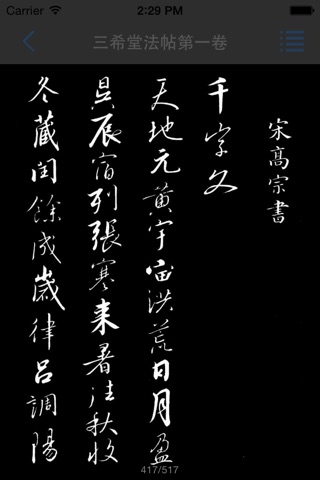 Carrier 2:29 PM
三希堂法帖第一卷
宋高宗書
千字文
天地元黃宇宙洪荒日月盈
昃辰宿列張寒來暑往秋收
冬藏閏餘成歲律呂調陽
417/517